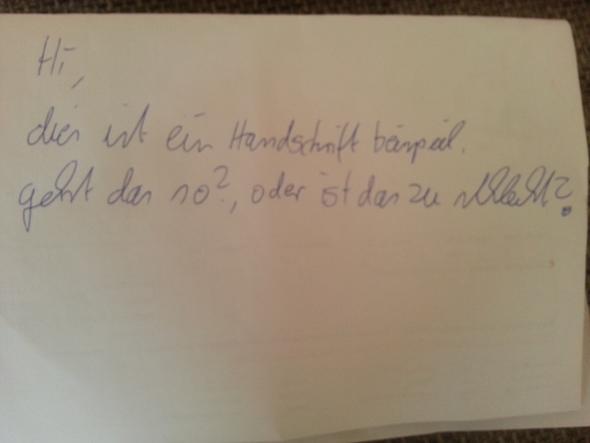 Hi,
dies ist ein Handschrift beispiel.
geht das so?, oder ist das zu schlecht?